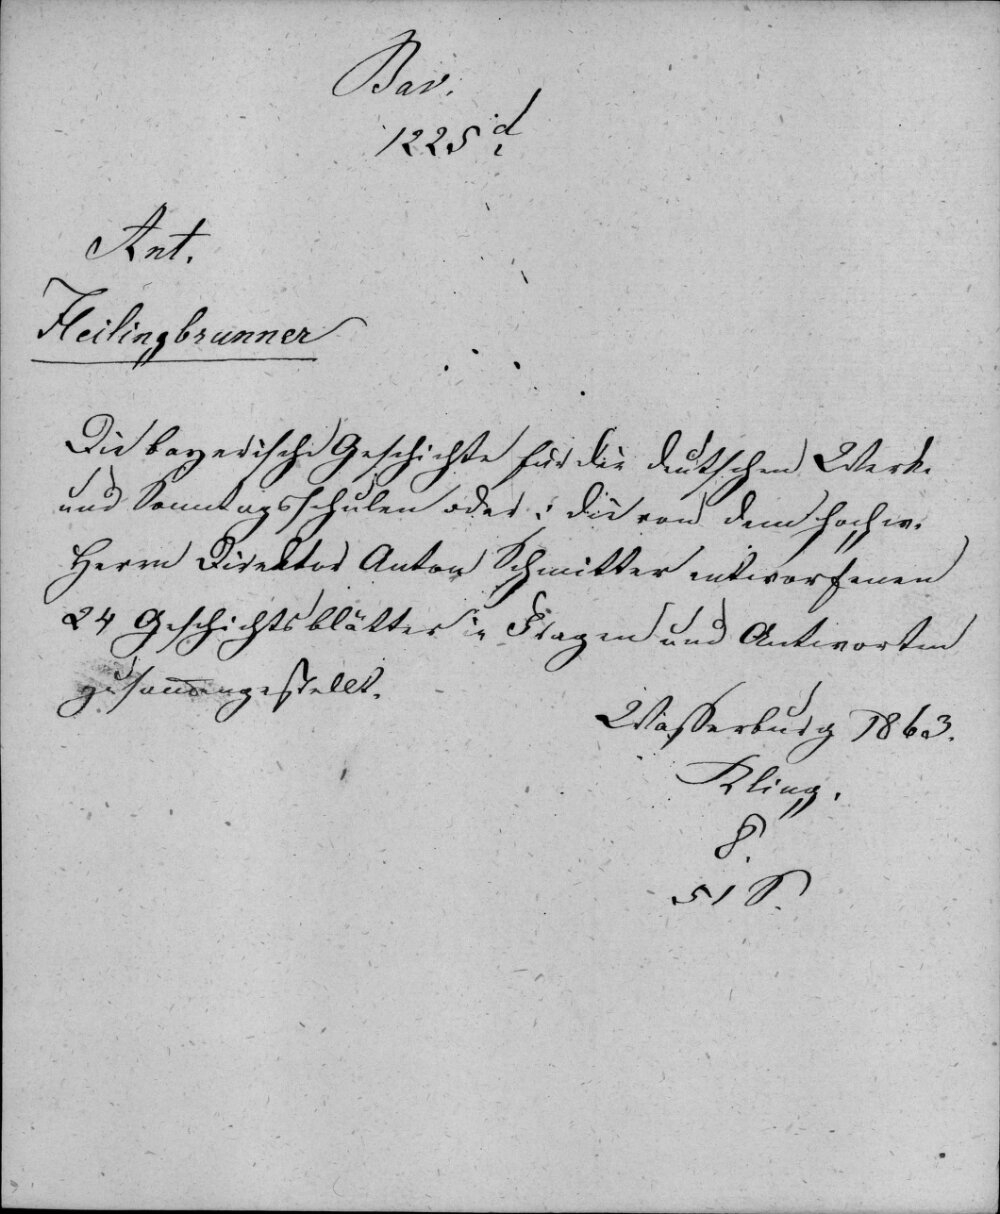 Bav.
1225 d.
Ant.
Heilingbrunner
Die bayerische Geschichte für die deutschen Werk-
und Sonntagsschulen oder: die von dem hochw.
Herrn Direktor Anton Schmitter entworfenen
24 Geschichtsblätter in Fragen und Antworten
zusam̅engestellt.
Wasserburg 1863.
Kling.
8.
51 S.